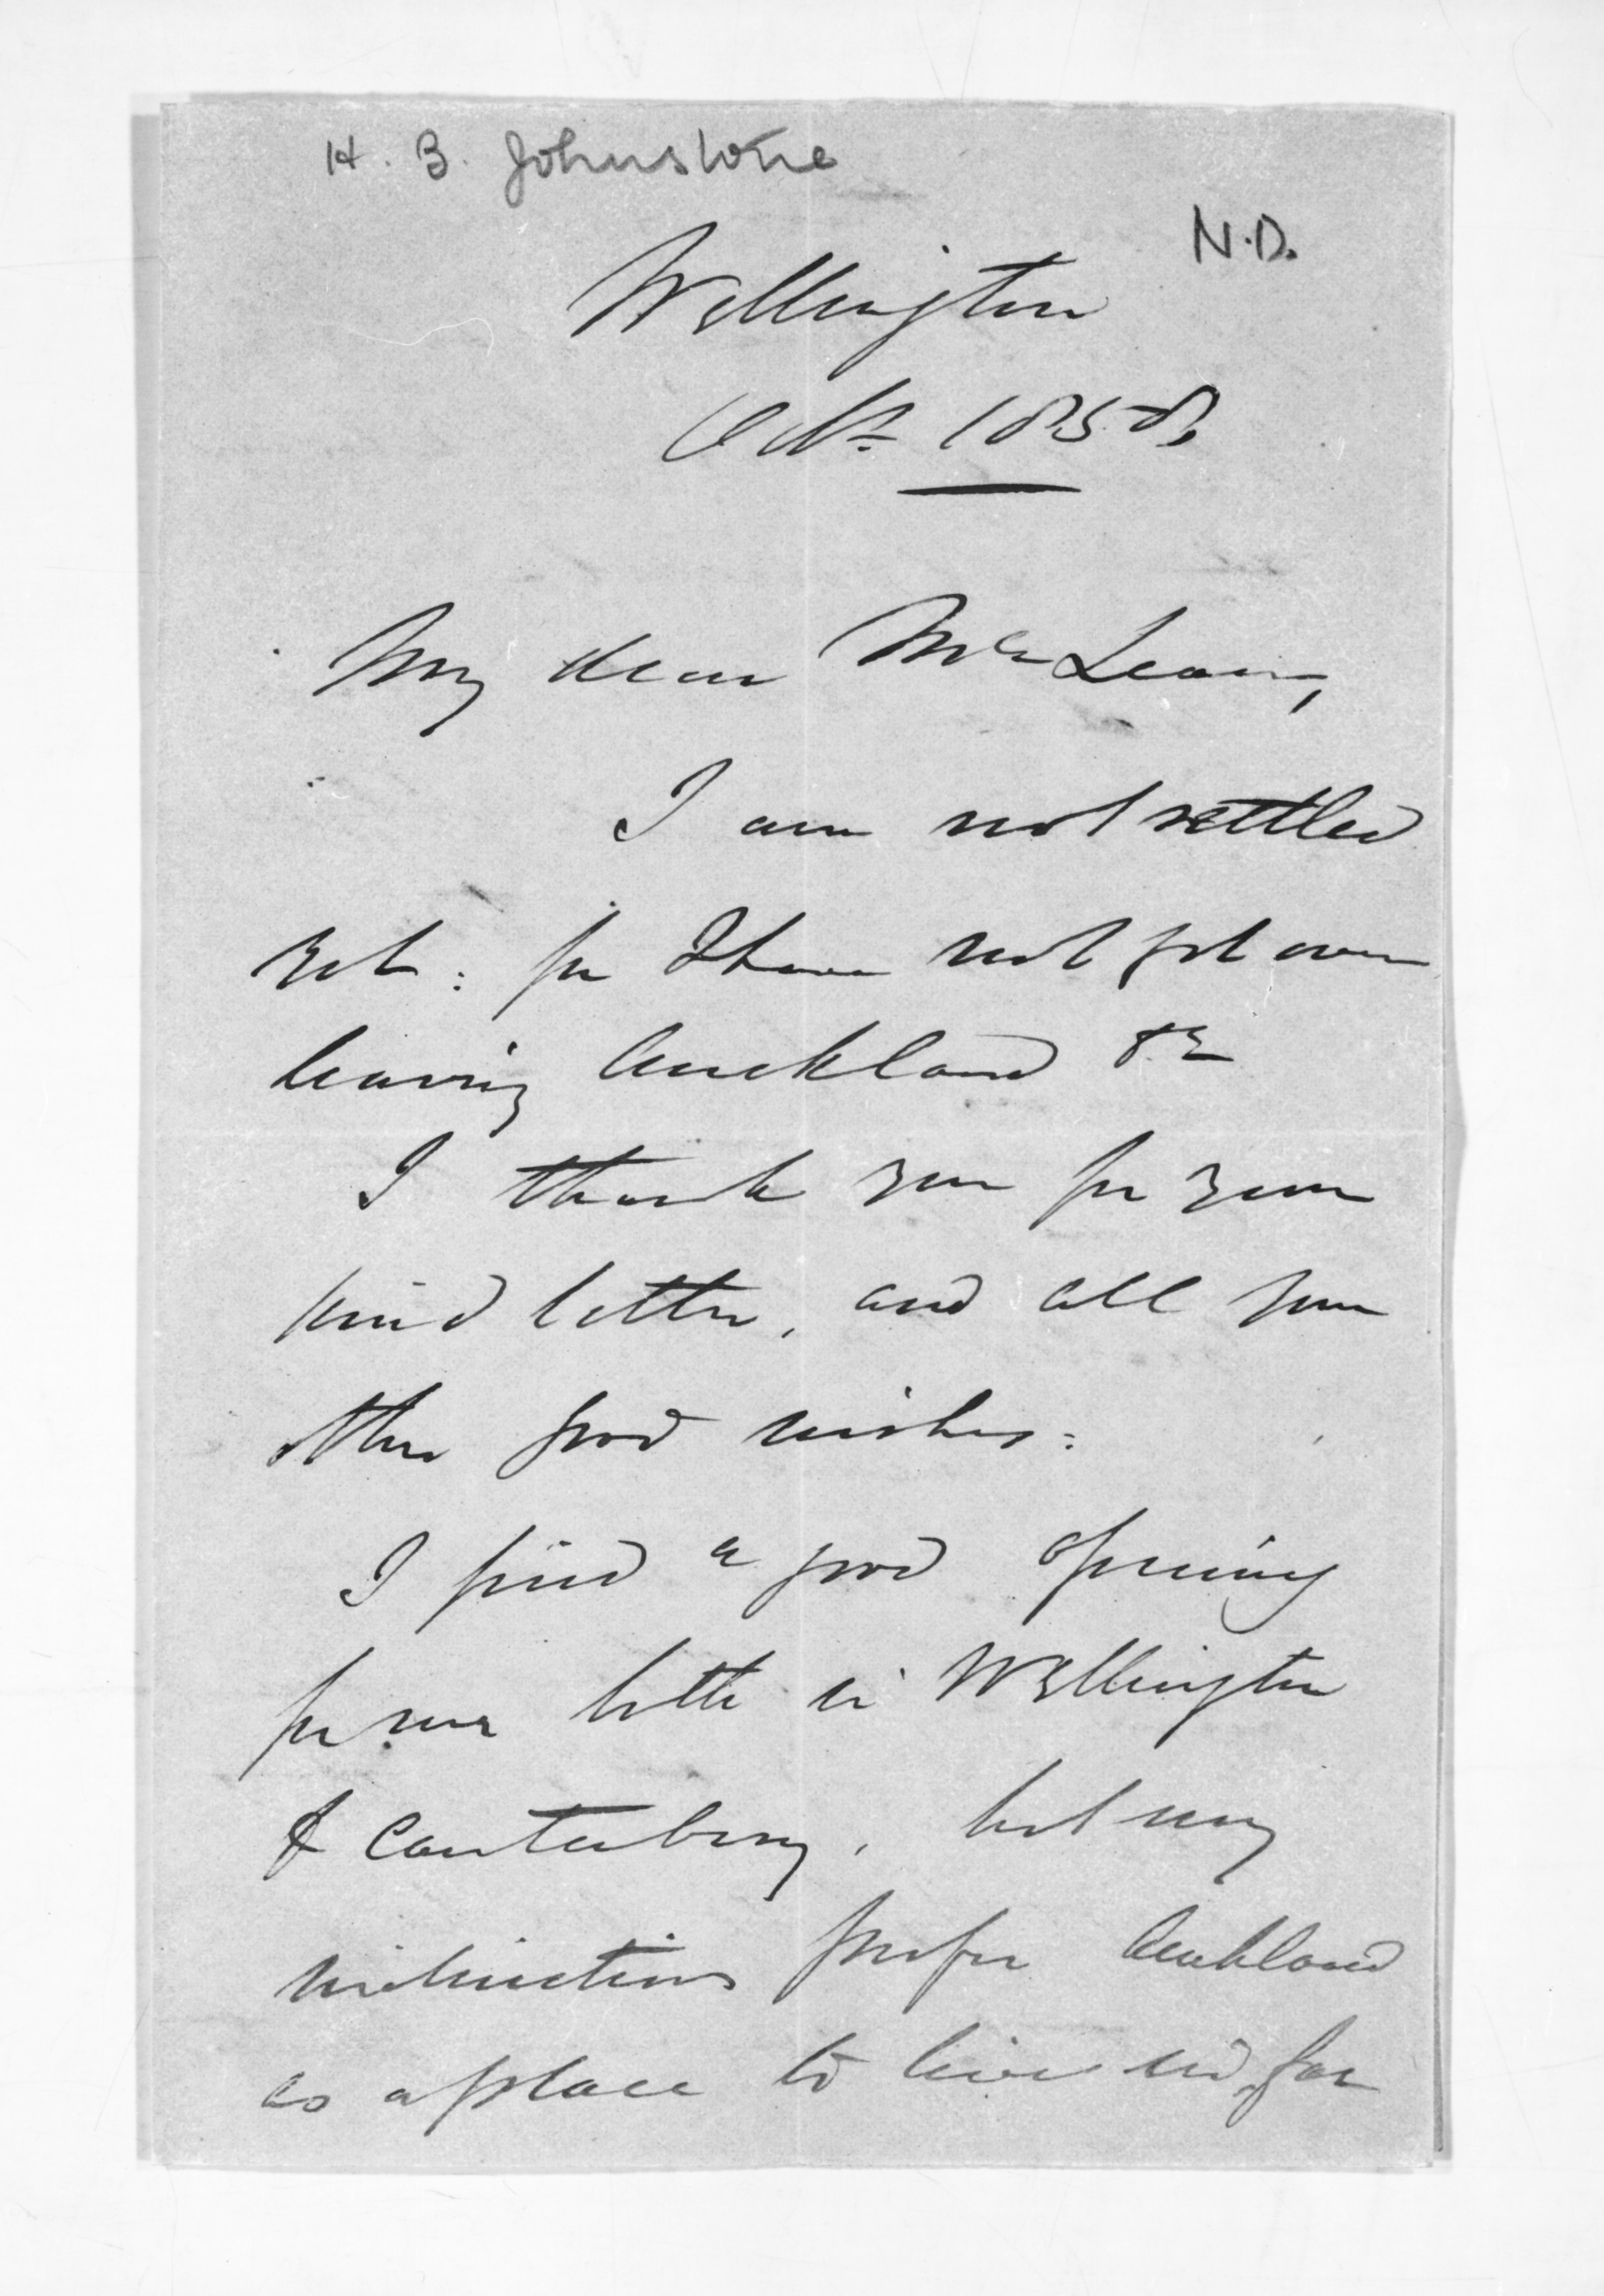 H. B. Johnstone
N.D.
Wellington
Octr 1858,
My dear McLean,
I am not settled
yet: for I have not got over
leaving Auckland &c
I thank you for your
kind letter, and all your
other good wishes:
I find a good opening
for me both in Wellington
& Canterbury, but my
inclinations prefer Auckland
as a place to live in far